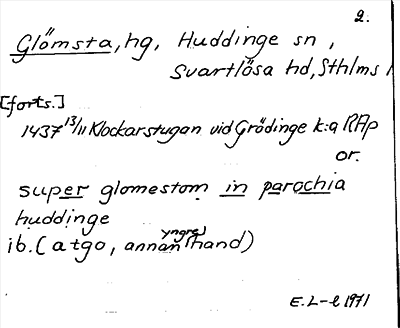 2.
Glömsta, hg, Huddinge sn,
Svartlösa hd, Sthlms l
[forts.]
1437 13/11 Klockarstugan vid Grödinge k:a RAp
or.
super glomestom in parochia
huddinge
ib. (atgo, annan yngre hand)
E. L-l 1971